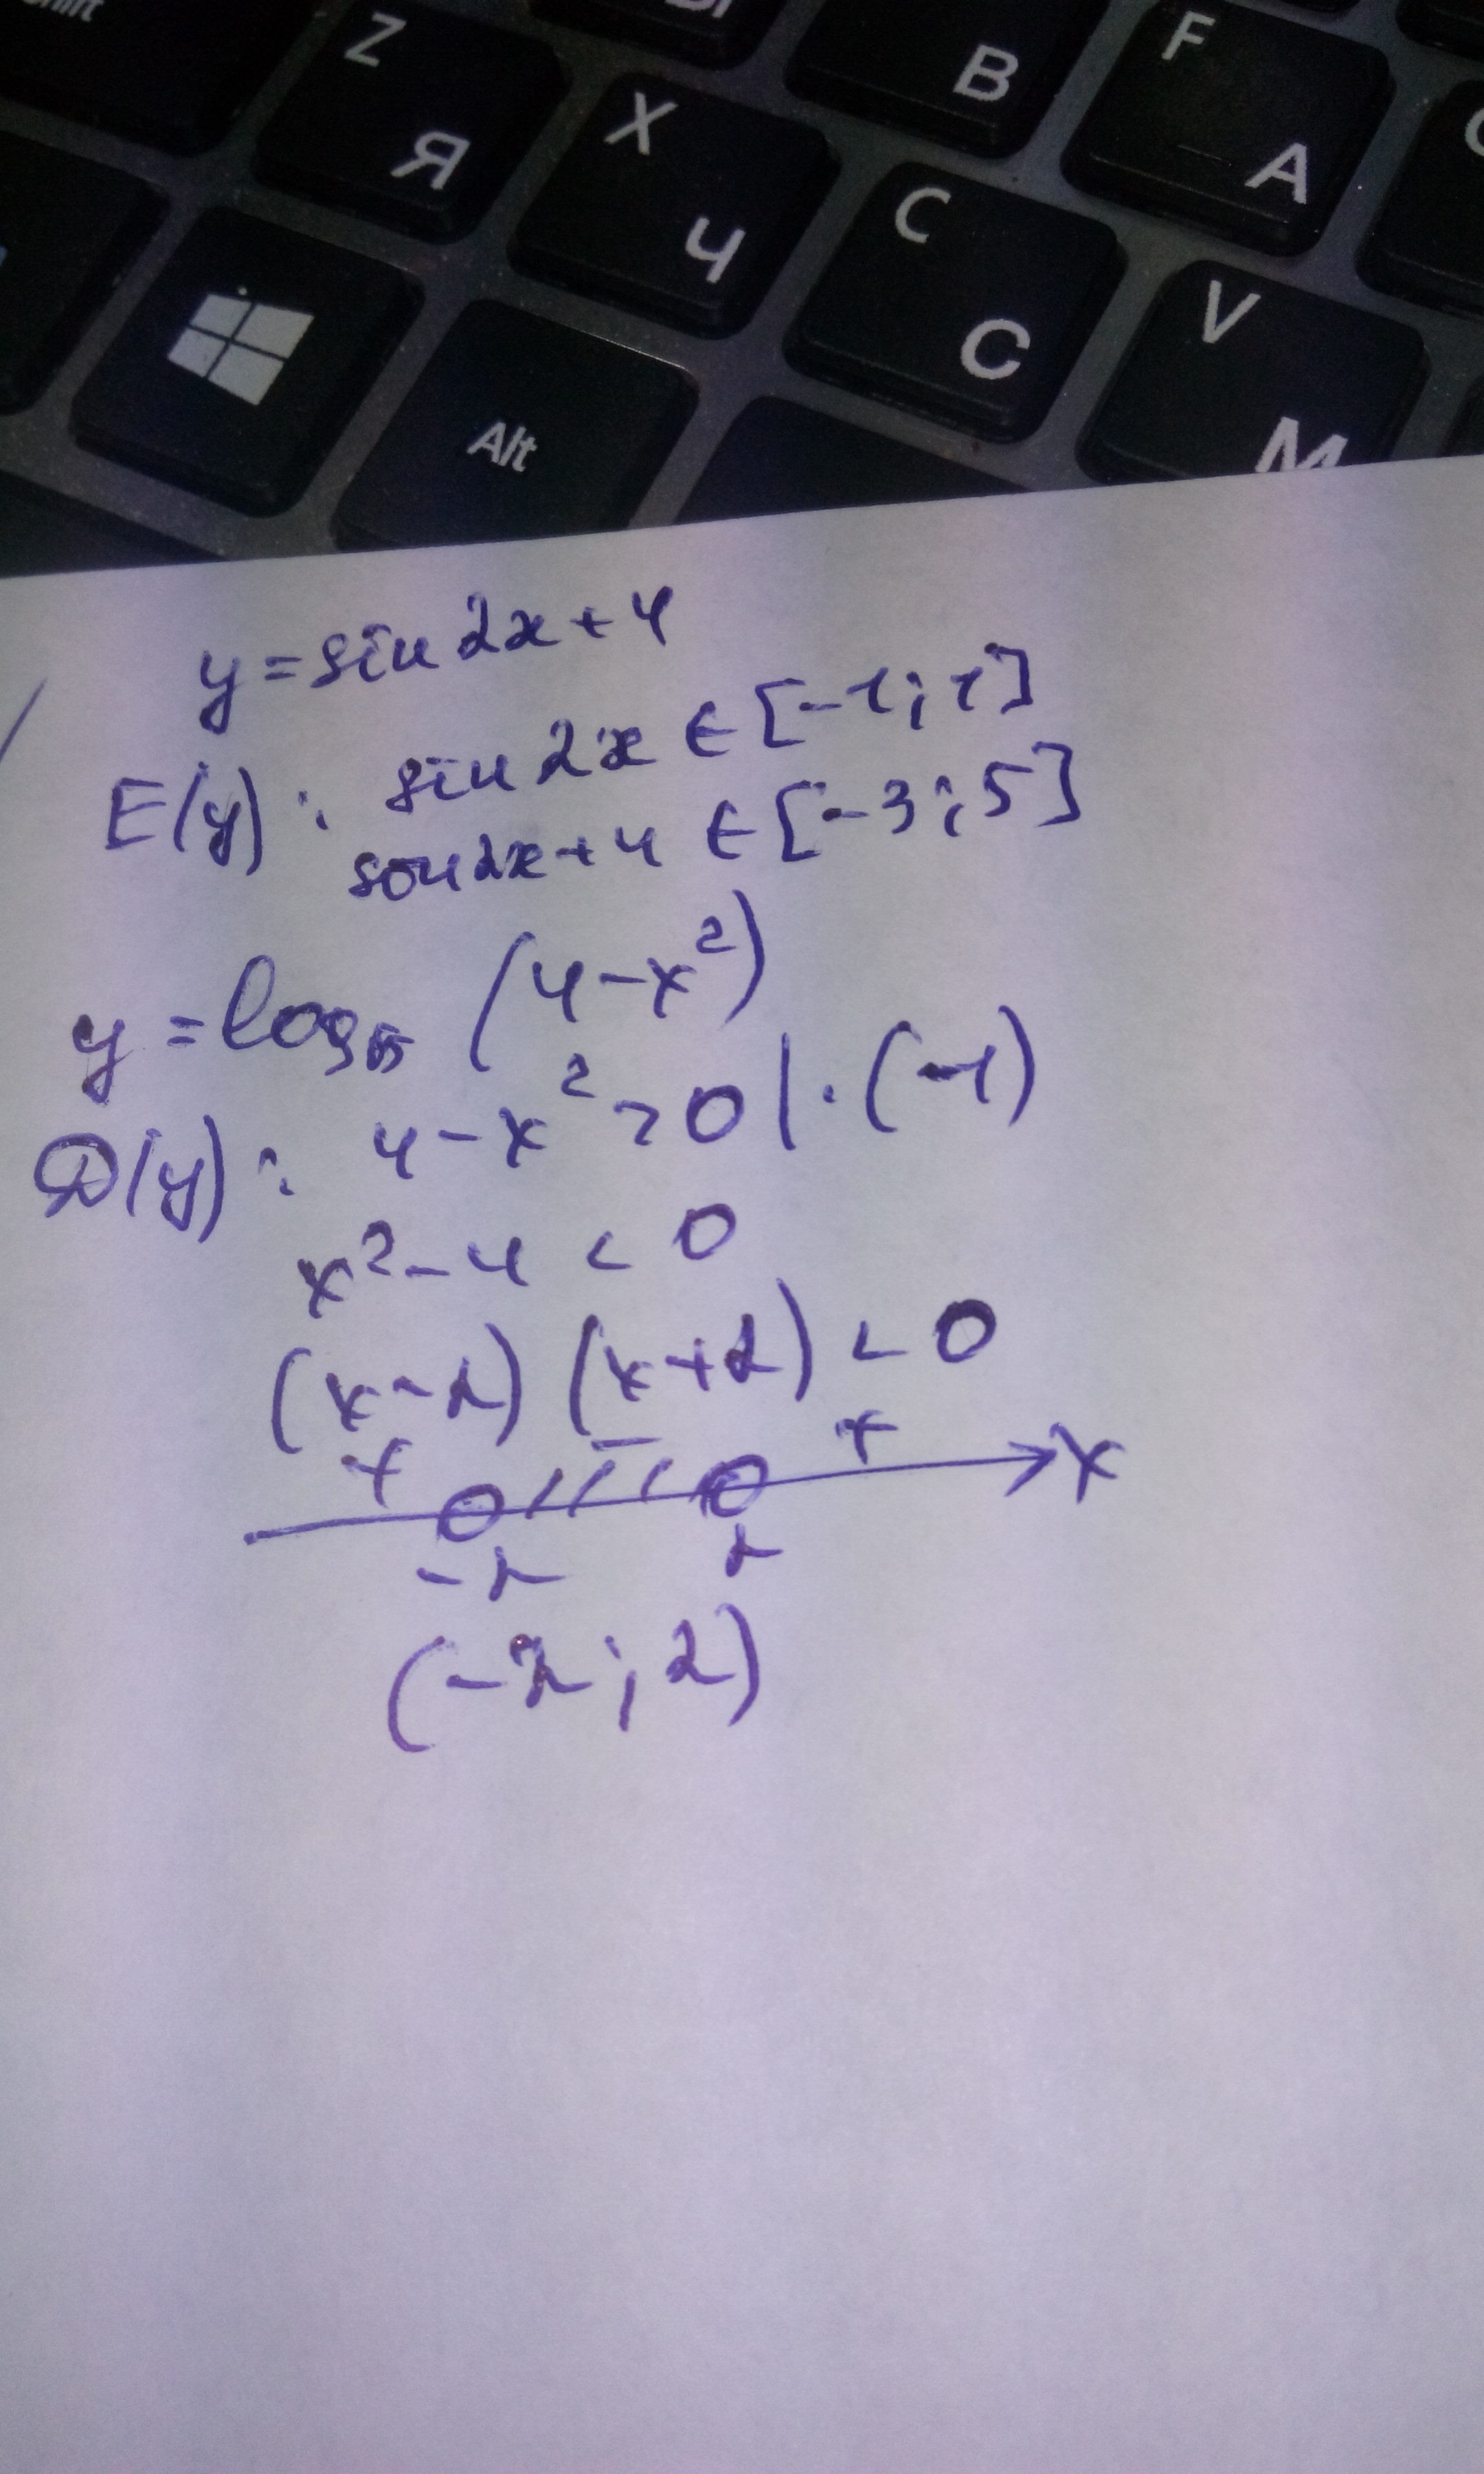 Shift
Z Я
X Ч
C С
B
F А
V М
Alt
y = sin 2x + 4
E(y): sin 2x ∈ [-1; 1]
sin 2x + 4 ∈ [-3; 5]
y = log₅ (4 - x²)
D(y): 4 - x² > 0 | · (-1)
x² - 4 < 0
(x - 2) (x + 2) < 0
+ - + x
-2 2
(-2; 2)